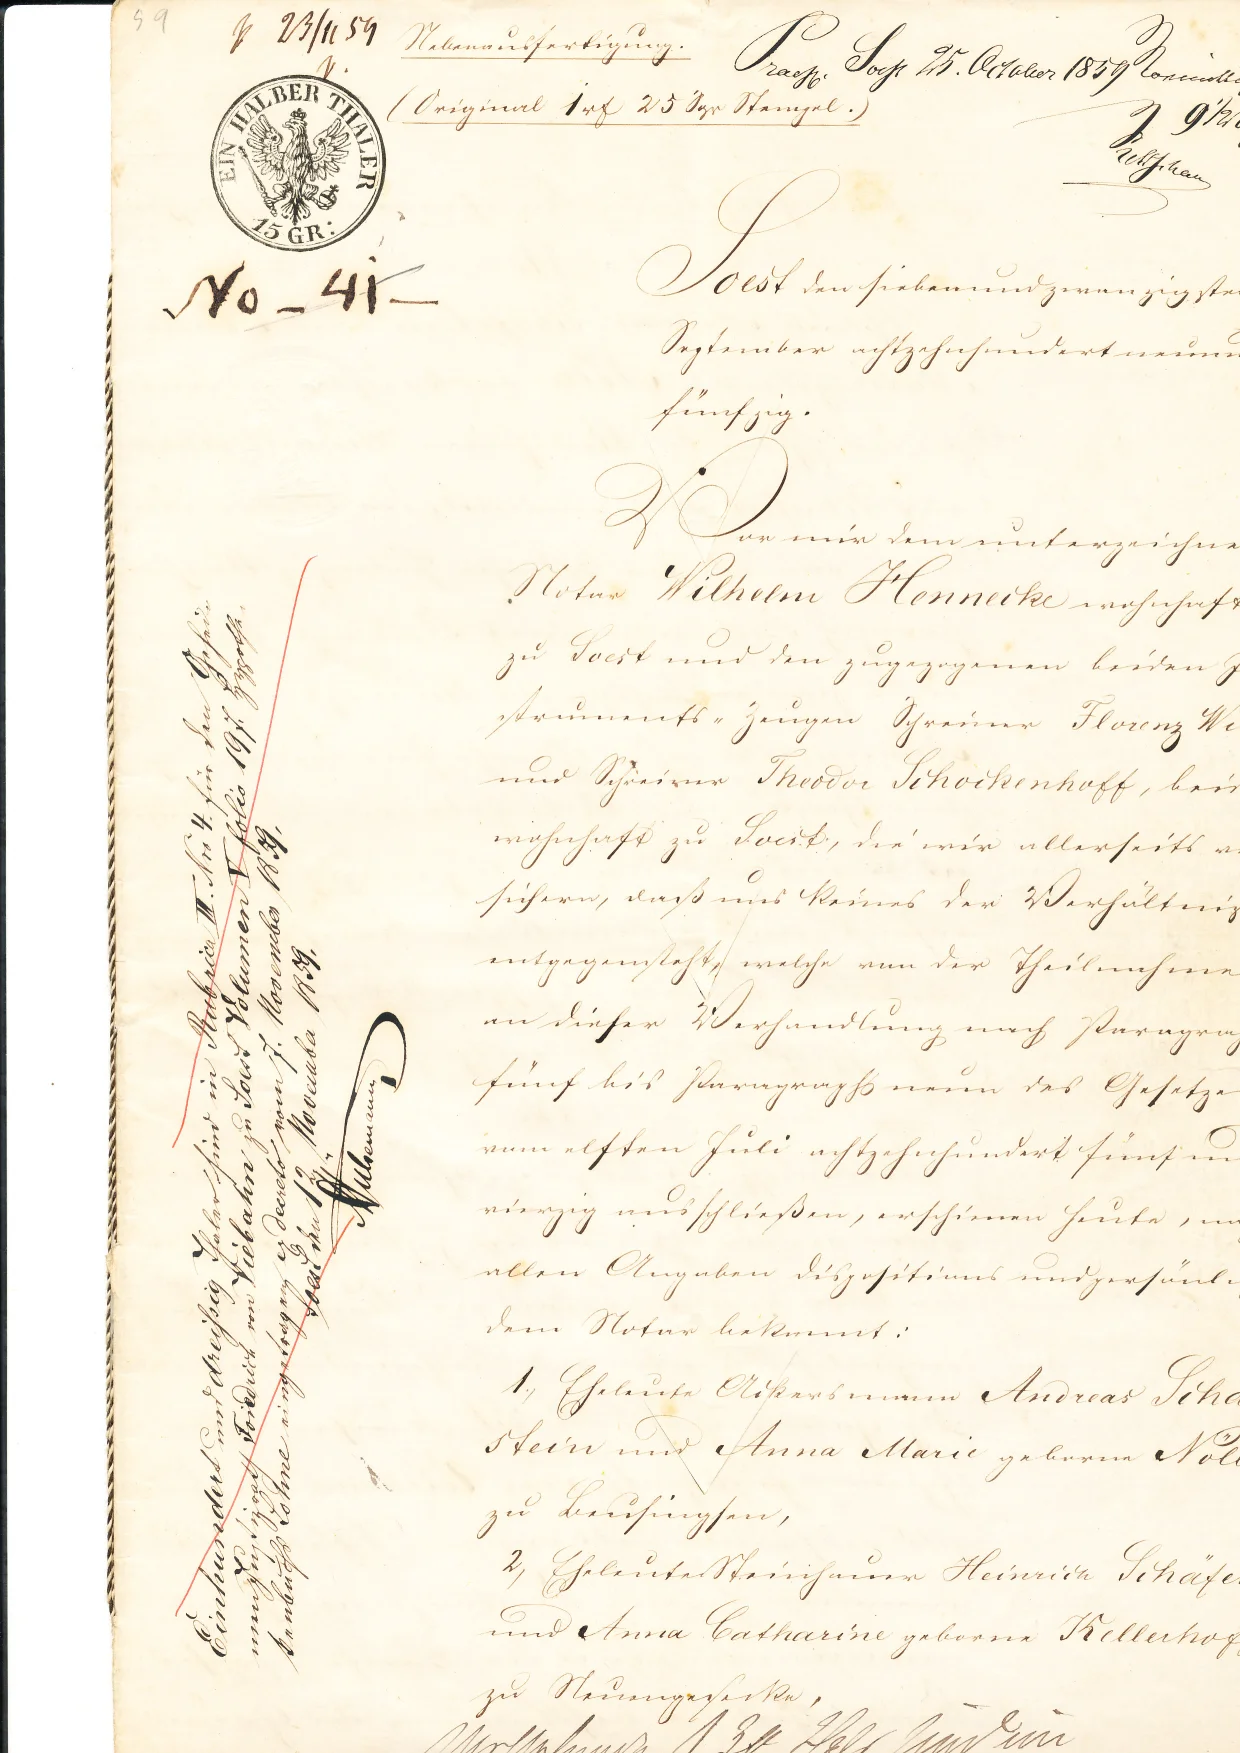 59
p 23/11 59
Nebenausfertigung.
(Original 1 rf 25 Sgr Stempel.)
Praes. Soest 25. October 1859 Vormittag
9 Uhr
EIN HALBER THALER
15 GR:
No - 41 -
Soest den siebenundzwanzigsten
September achtzehnhundert neunu
fünfzig.
Vor mir dem unterzeichne
Notar Wilhelm Hennecke wohnhaft
zu Soest und den zugezogenen beiden I
struments-Zeugen Schreiner Florenz Wi
und Schreiner Theodor Schockenhoff, beid
wohnhaft zu Soest, die wir allerseits ve
sichern, daß uns keines der Verhältniß
entgegensteht, welche von der Theilnahme
an dieser Verhandlung nach Paragrap
fünf bis Paragraph neun des Gesetze
vom elften Juli achtzehnhundert fünf un
vierzig ausschließen, erschienen heute, na
allen Angaben dispositions und persönli
dem Notar bekannt:
1, Eheleute Ackersmann Andreas Scha
stein und Anna Marie geborne Nöl
zu Beusingsen,
2, Eheleute Steinhauer Heinrich Schäfe
und Anna Catharine geborne Kellerhof
zu Neuengeseke,
Einhundert und dreißig Thaler sind in Rubrica III. Nro 4. für den
Friedrich von Viebahn zu Soest Volumen V folio 197 Hypothe-
kenbuchs Sohne eingetragen ex decreto vom 7. November 1859.
Soest den 12. November 1859.